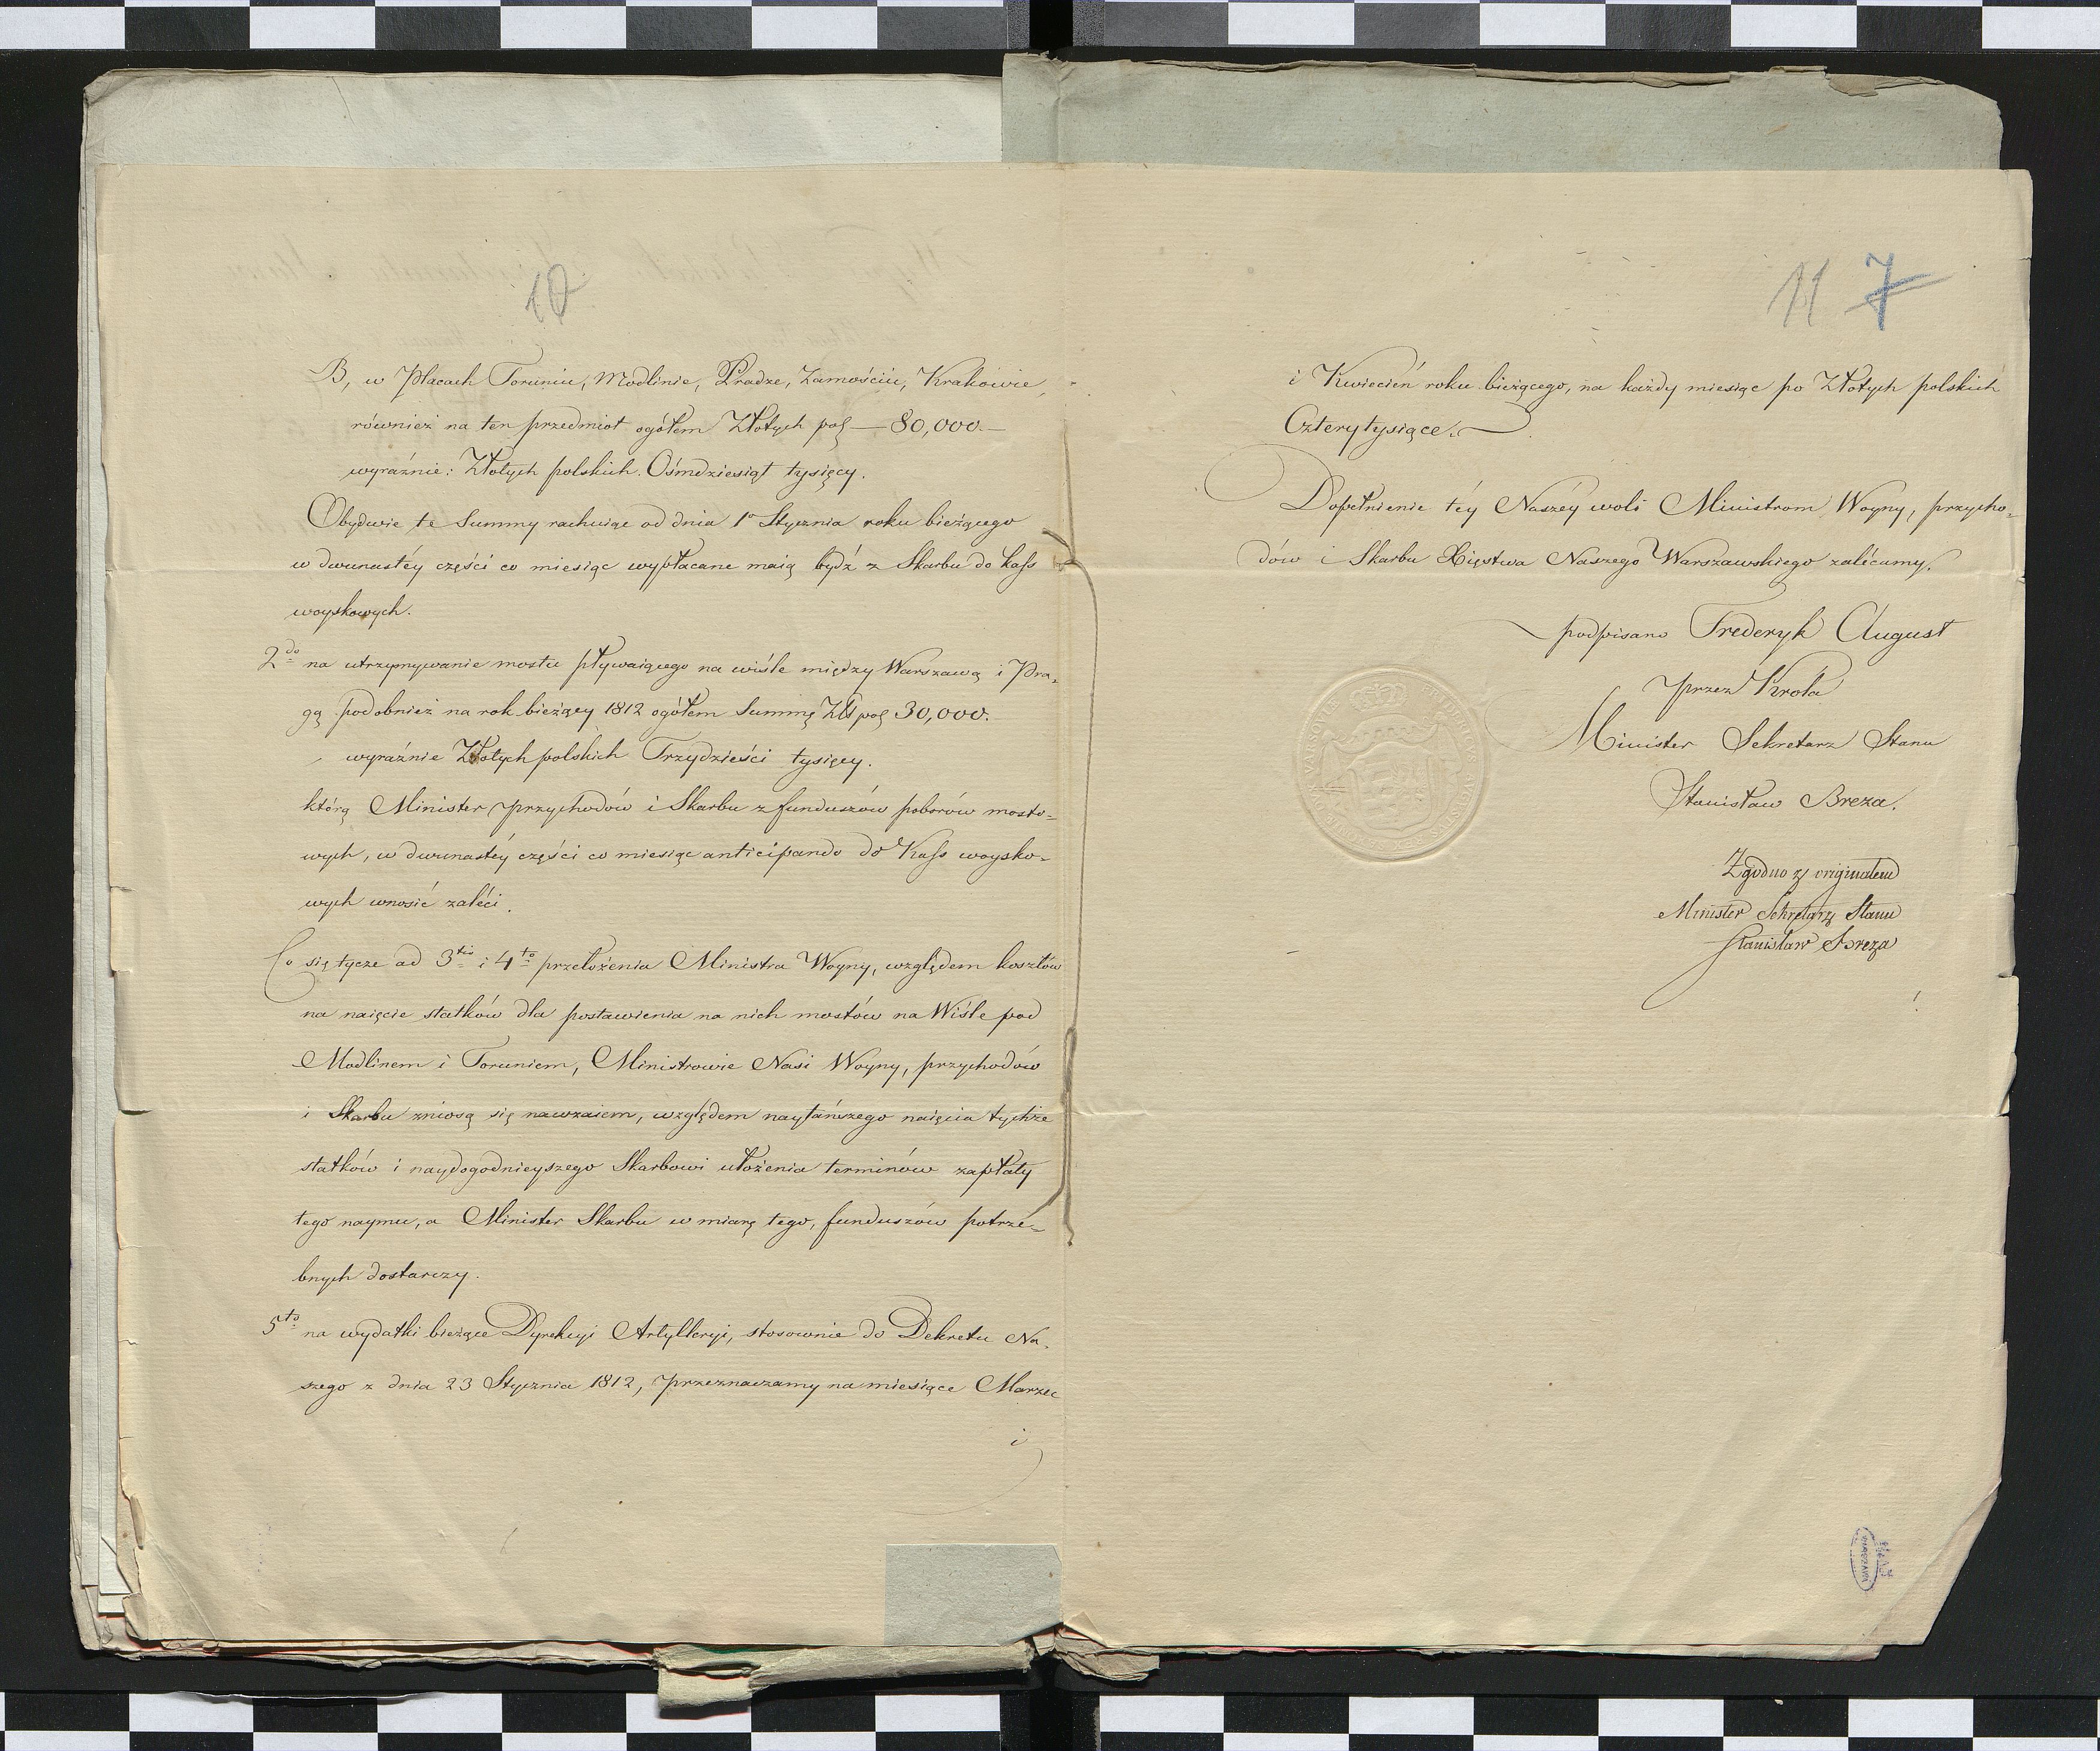 10
B, w Placach Toruniu, Modlinie, Pradze, Zamościu, Krakowie,
również na ten przedmiot ogółem Złotych pol — 80,000.—
wyraźnie: Złotych polskich Ośmdziesiąt tysięcy.
Obydwie te Summy rachuiąc od dnia 1º Stycznia roku bieżącego
w dwunastéy części co miesiąc wypłacane maią bydź z Skarbu do kass
woyskowych.
2do na utrzymywanie mostu pływaiącego na wiśle między Warszawą i Pra-
gą podobnież na rok bieżący 1812 ogółem Summę Złł pol 30,000.
wyraźnie Złotych polskich Trzydzieści tysięcy.
którą Minister przychodów i Skarbu z funduszów poborów mosto=
wych, w dwunastéy części co miesiąc anticipando do Kass woysko-
wych wnosić zaléci.
Co się tycze ad 3tio i 4to przełożenia Ministra Woyny, względem kosztów
na naięcie statków dla postawienia na nich mostów na Wiśle pod
Modlinem i Toruniem, Ministrowie Nasi Woyny, przychodów
i Skarbu zniosą się nawzaiem, względem naytańszego naięcia tychże
statków i naydogodnieyszego Skarbowi ułożenia terminów zapłaty
tego naymu, a Minister Skarbu w miarę tego, funduszów potrze=
bnych dostarczy.
5to na wydatki bieżące Dyrekcyi Artylleryi, stosownie do Dekretu Na-
szego z dnia 23 Stycznia 1812, przeznaczamy na miesiące Marzec
i
11 7
i Kwiecień roku bieżącego, na każdy miesiąc po Złotych polskich
Czterytysiące.
Dopełnienie téy Naszéy woli Ministrom Woyny, przycho=
dów i Skarbu Xięstwa Naszego Warszawskiego zalécamy.
podpisano Frederyk August
przez Króla
Minister Sekretarz Stanu
Stanisław Breza.
Zgodno z originałem
Minister Sekretarz Stanu
Stanisław Breza